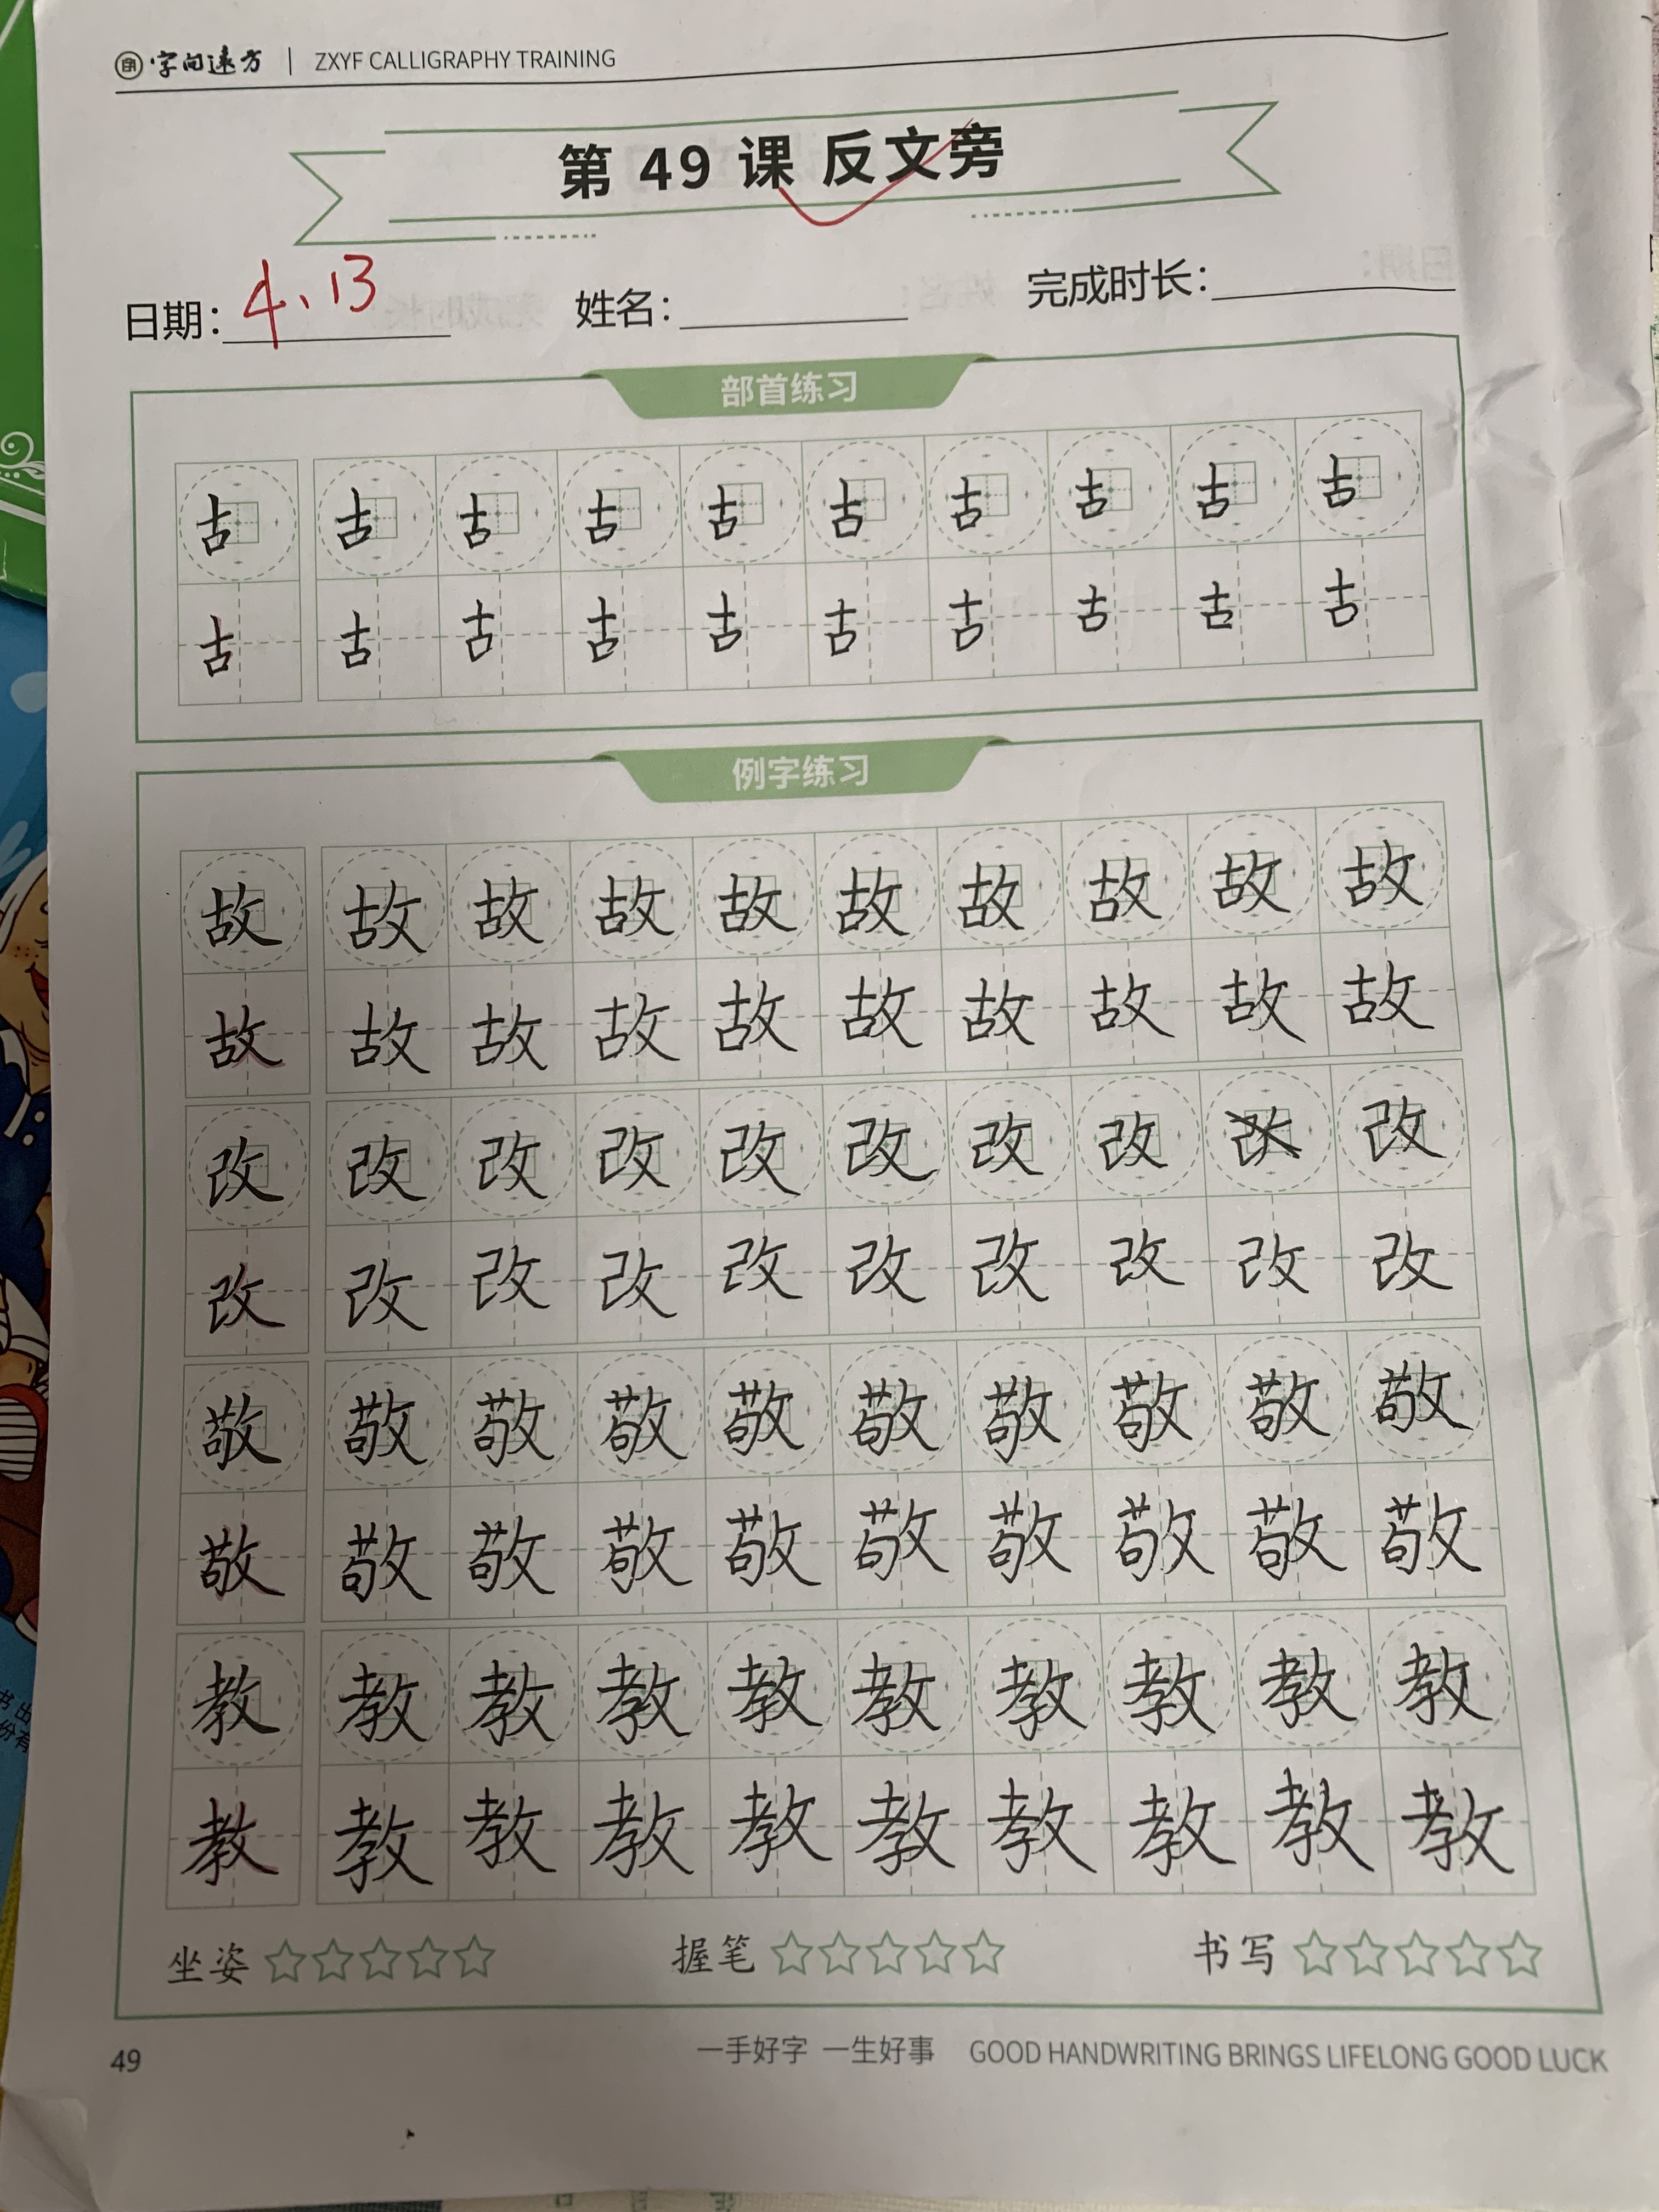 字向远方 | ZXYF CALLIGRAPHY TRAINING
第 49 课 反文旁
日期： 4、13 姓名： 完成时长：
部首练习
古 古 古 古 古 古 古 古 古 古
古 古 古 古 古 古 古 古 古 古
例字练习
故 故 故 故 故 故 故 故 故 故
故 故 故 故 故 故 故 故 故 故
改 改 改 改 改 改 改 改 改
改 改 改 改 改 改 改 改 改 改
敬 敬 敬 敬 敬 敬 敬 敬 敬 敬
敬 敬 敬 敬 敬 敬 敬 敬 敬 敬
教 教 教 教 教 教 教 教 教 教
教 教 教 教 教 教 教 教 教 教
坐姿 握笔 书写
49 一手好字 一生好事 GOOD HANDWRITING BRINGS LIFELONG GOOD LUCK